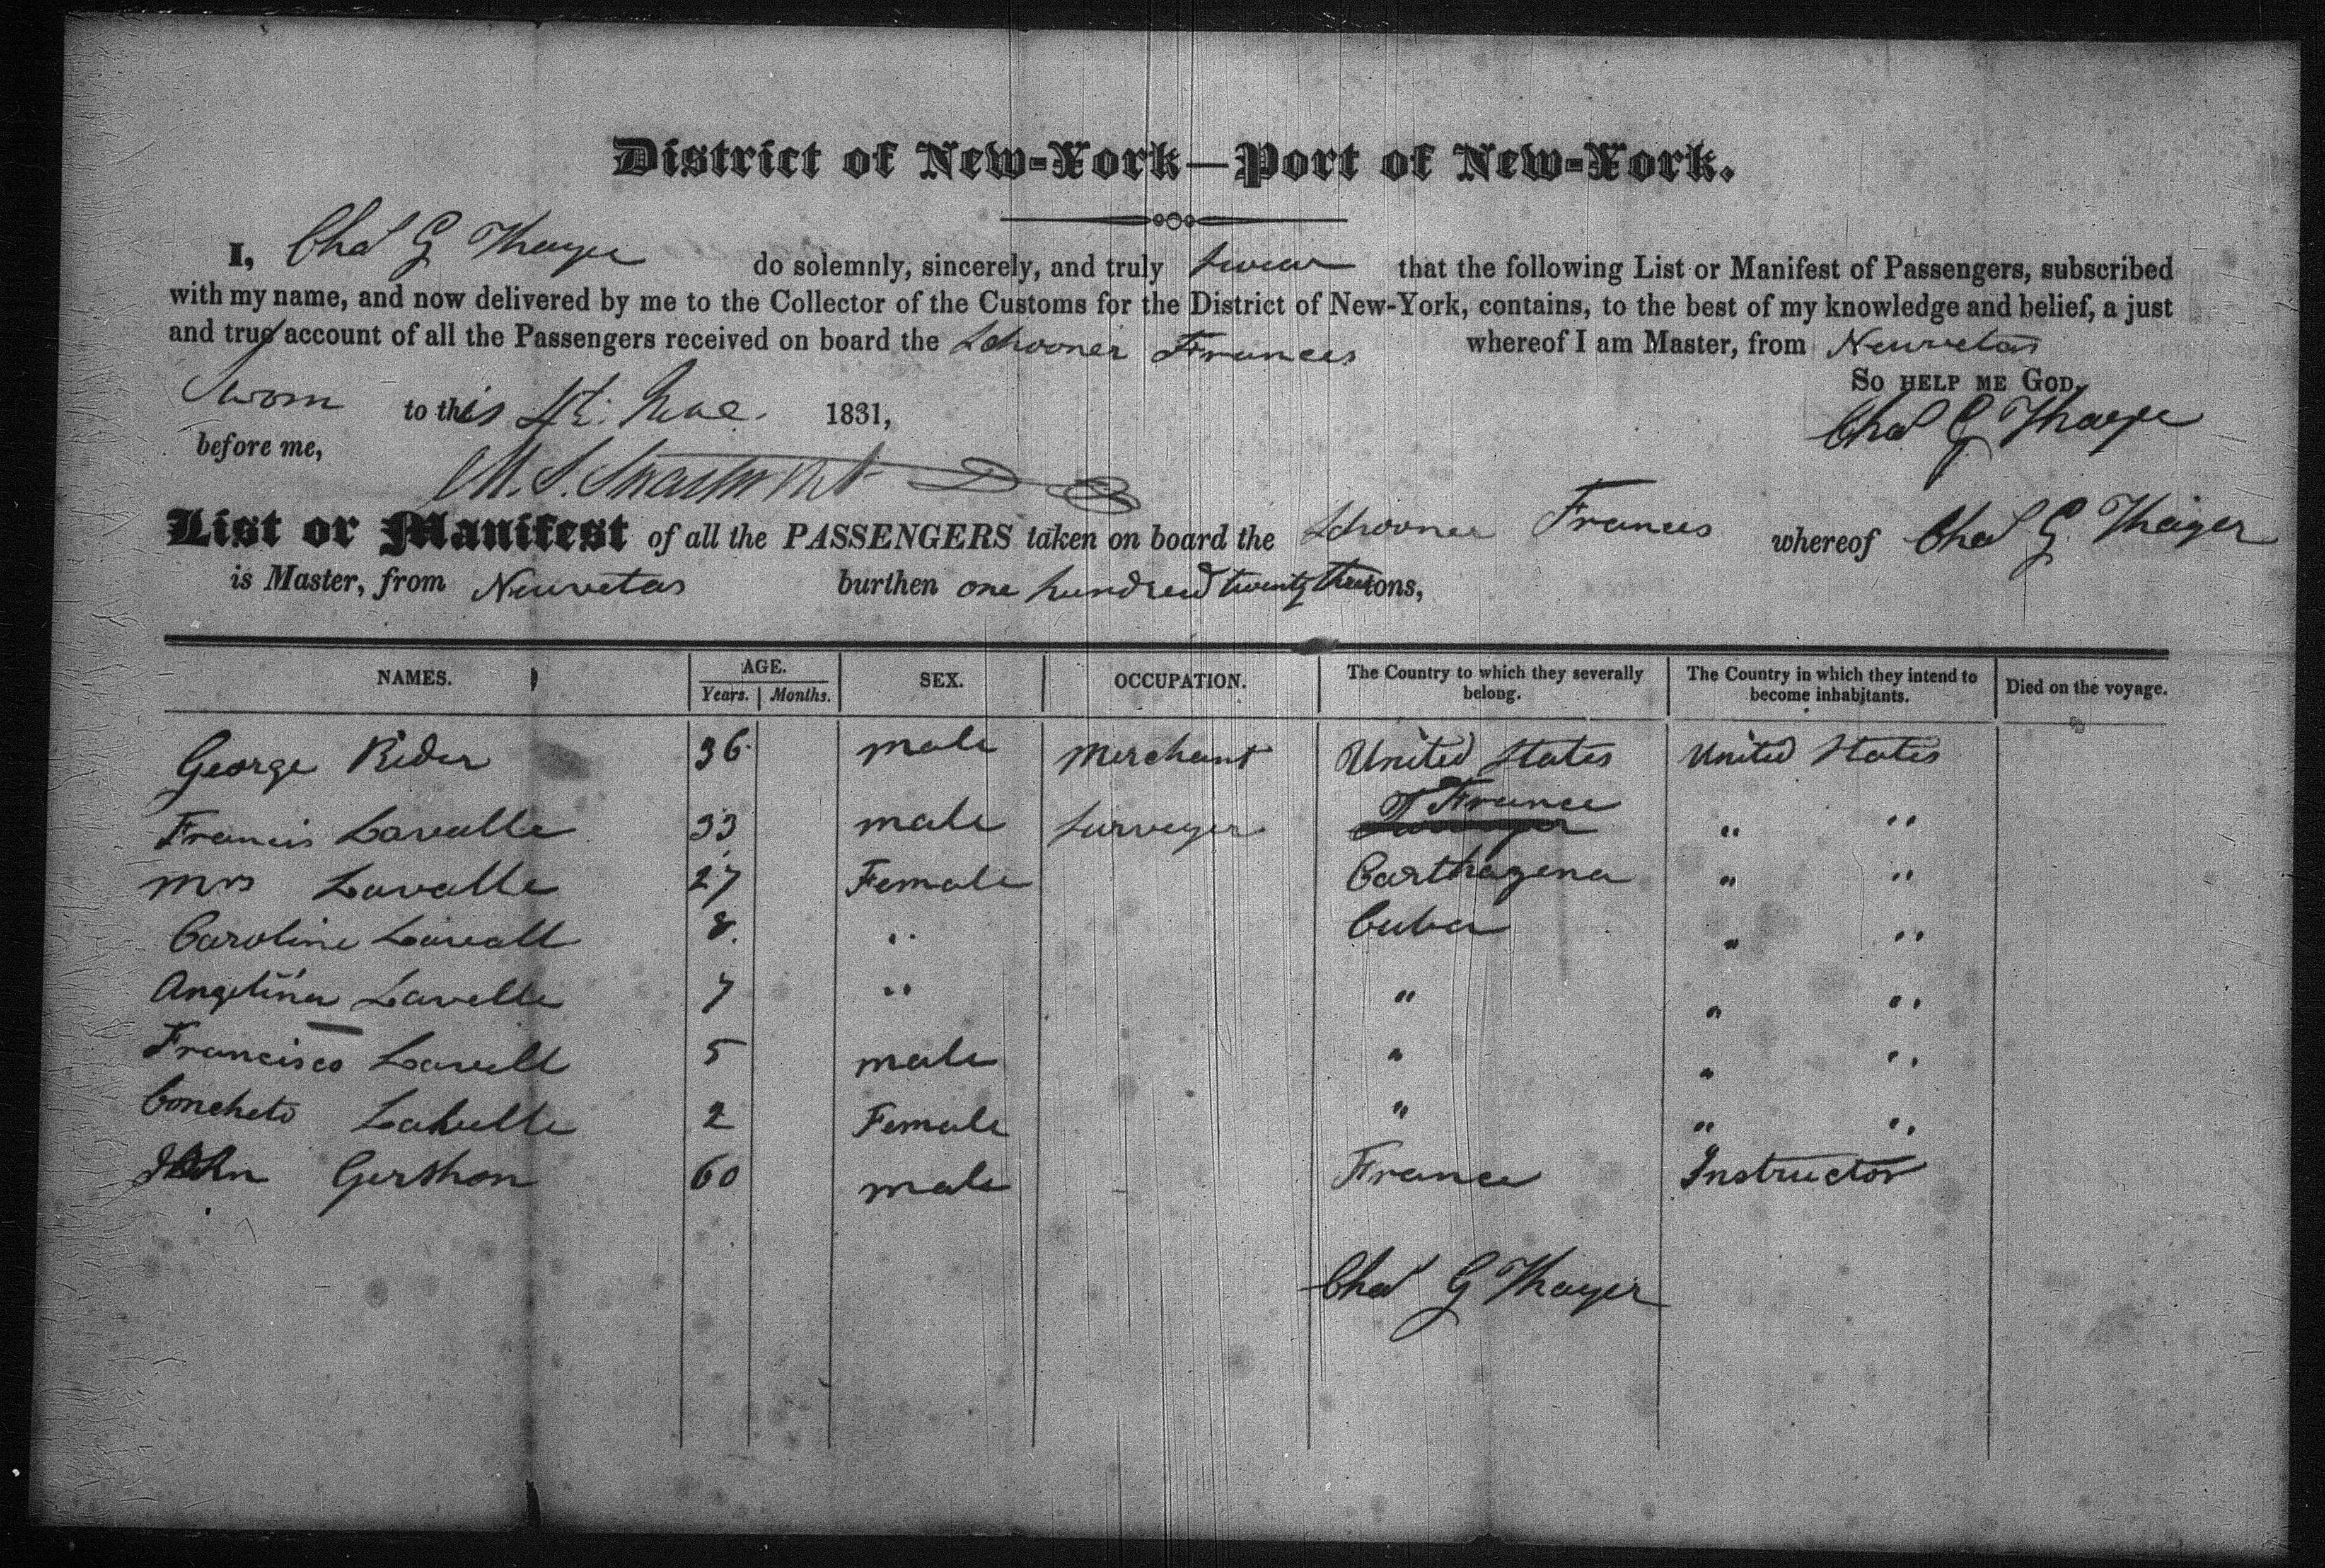 District of New-York—Port of New-York.
I, Chas G Thayer do solemnly, sincerely, and truly swear that the following List or Manifest of Passengers, subscribed
with my name, and now delivered by me to the Collector of the Customs for the District of New-York, contains, to the best of my knowledge and belief, a just
and true account of all the Passengers received on board the Schooner Frances whereof I am Master, from Neuvetas
So help me God.
Sworn to this 4th 1831, Chas G Thayer
before me,
List or Manifest of all the PASSENGERS taken on board the Schooner Frances whereof Chas G. Thayer
is Master, from Neuvetas burthen one hundred twenty three tons,
NAMES. AGE. Years. Months. SEX. OCCUPATION. The Country to which they severally belong. The Country in which they intend to become inhabitants. Died on the voyage.
George Rider 36 male Merchant United States United States
Francis Lavalle 33 male Surveyer France " "
Mrs Lavalle 27 Female Carthagena " "
Caroline Lavall 8. " Cuba " "
Angelina Lavelle 7 " " " "
Francisco Lavell 5 male " " "
Concheto Lavelle 2 Female " " "
John Gershon 60 male - France Instructor
Chas G Thayer